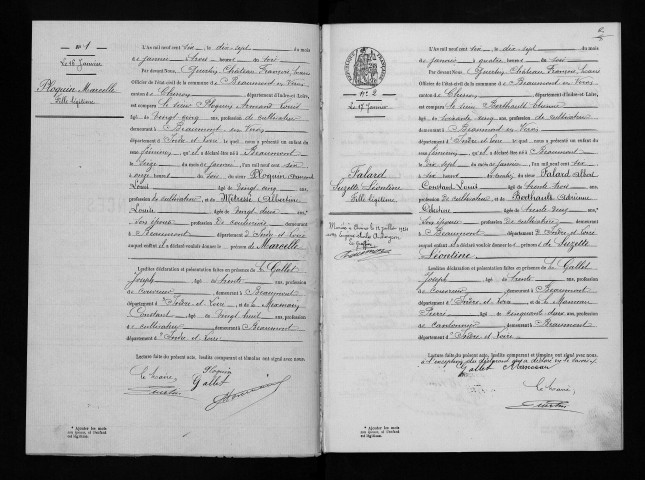 N° 1
Le 16 Janvier
Ploquin Marcelle
Fille légitime
L'An mil neuf cent six, le dix-sept du mois
de janvier à trois heures du soir
Par devant Nous, Château François,
Officier de l'état civil de la commune de Beaumont en Véron
canton de Chinon, département d'Indre-et-Loire,
est comparu le sieur Ploquin Armand Louis
âgé de vingt cinq ans, profession de cultivateur
demeurant à Beaumont en Véron
département d'Indre et Loire, lequel nous a présenté un enfant du
sexe féminin, qu'il a déclaré né à Beaumont
le seize du mois de janvier, l'an mil neuf cent six
à onze heures du soir, du sieur Ploquin Armand
Louis âgé de vingt cinq ans,
profession de cultivateur et de Métresse Albertine
Louise âgée de vingt deux ans,
son épouse profession de couturière
demeurant à Beaumont département d'Indre et Loire
auquel enfant il a déclaré vouloir donner le prénom de Marcelle
Lesdites déclaration et présentation faites en présence de Gallet
Joseph âgé de trente ans, profession
de couvreur demeurant à Beaumont
département d'Indre et Loire et de
Constant âgé de vingt huit ans, profession
de cultivateur demeurant à Beaumont
département d'Indre et Loire.
Lecture faite du présent acte, lesdits comparant et témoins ont signé avec nous.
Le Maire, Ploquin
Gallet
* Ajouter les mots
son épouse, si l'enfant
est légitime.
N° 2
Le 17 Janvier
Falard
Suzette Léontine
Fille légitime
Mariée à Chinon le 12 juillet 1924
L'An mil neuf cent six, le dix-sept du mois
de janvier à quatre heures du soir
Par devant Nous, Château François,
Officier de l'état civil de la commune de Beaumont en Véron
canton de Chinon, département d'Indre-et-Loire,
est comparu le sieur Berthault Étienne
âgé de soixante cinq ans, profession de cultivateur
demeurant à Beaumont en Véron
département d'Indre et Loire, lequel nous a présenté un enfant du
sexe féminin, qu'il a déclaré né à Beaumont
le dix sept du mois de janvier, l'an mil neuf cent six
à six heures du matin, du sieur Falard Albert
Constant Louis âgé de trente trois ans,
profession de cultivateur et de Berthault Adrienne
Célestine âgée de trente cinq ans,
son épouse profession de cultivatrice
demeurant à Beaumont département d'Indre et Loire
auquel enfant il a déclaré vouloir donner le prénom de Suzette
Léontine
Lesdites déclaration et présentation faites en présence de Gallet
Joseph âgé de trente ans, profession
de couvreur demeurant à Beaumont
département d'Indre et Loire et de
Pierre âgé de cinquante deux ans, profession
de cantonnier demeurant à Beaumont
département d'Indre et Loire.
Lecture faite du présent acte, lesdits comparant et témoins ont signé avec nous.
à l'exception du déclarant qui a déclaré ne le savoir
Gallet
Le Maire,
* Ajouter les mots
son épouse, si l'enfant
est légitime.